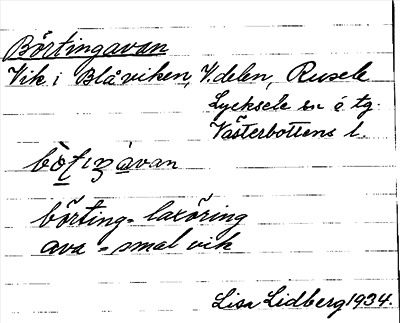 Börtingavan
Vik i Blåviken, V. delen, Rusele
Lycksele sn o. tg.
Västerbottens l.
börting = laxöring
ava = smal vik
Lisa Lidberg 1934.